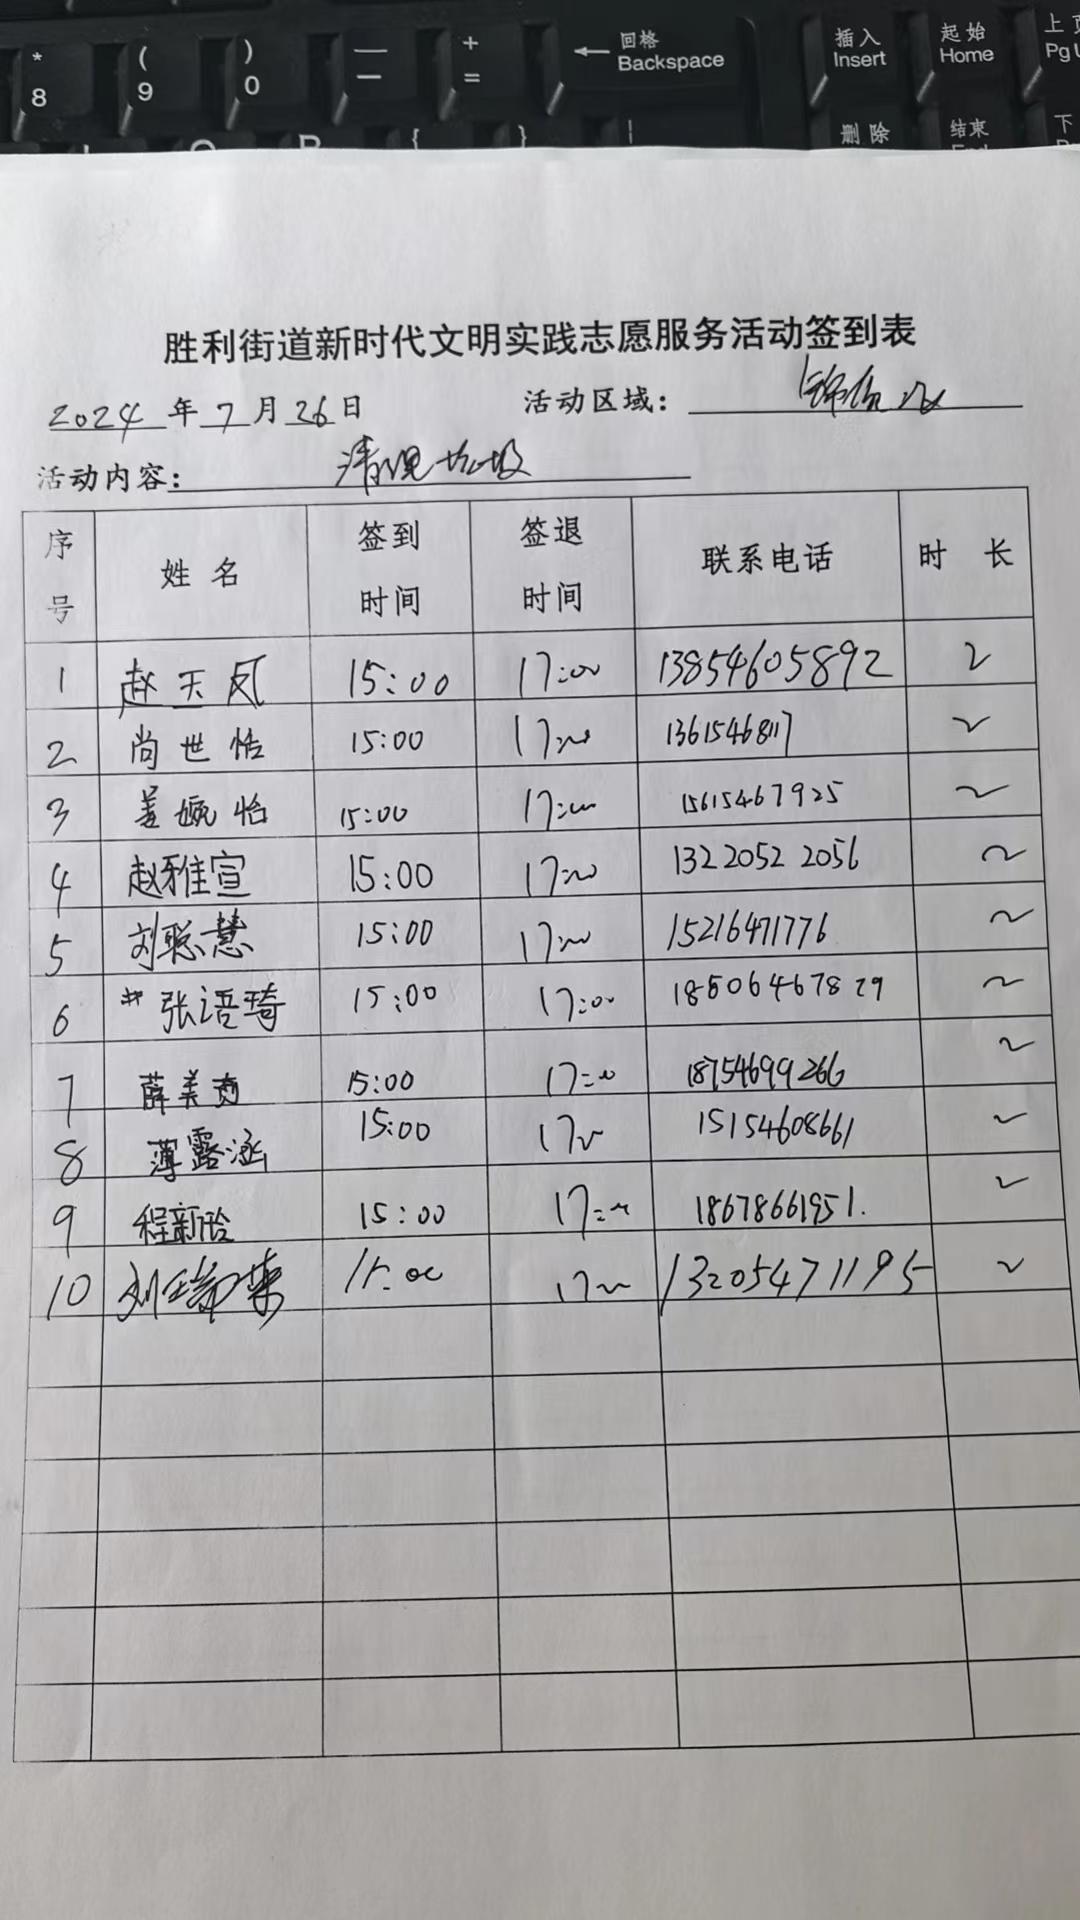 * ( ) — + 回格 插入 起始 上页
8 9 0 — = ← Backspace Insert Home Pg U
{ } | 删除 结束 下
胜利街道新时代文明实践志愿服务活动签到表
2024年7月26日 活动区域：
活动内容：清理垃圾
序号 姓名 签到时间 签退时间 联系电话 时长
1 赵天凤 15:00 17:00 13854605892 2
2 尚世恬 15:00 17:00 13615468117 2
3 姜婉怡 15:00 17:00 15615467925 2
4 赵雅宣 15:00 17:00 13220522056 2
5 刘聪慧 15:00 17:00 15216471776 2
6 张语琦 15:00 17:00 2
7 薛美 15:00 17:00 18754699266 2
8 薄露涵 15:00 1700 15154608661 2
9 程新 15:00 17:00 18678661951. 2
10 刘 15:00 1700 13205471195 2